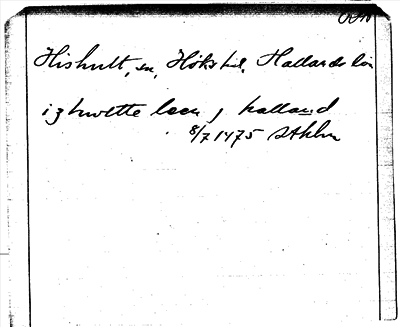 Hishult, sn, Höks hd. Hallands län
i zhwlte leen j halland
8/7 1475 Sthlm